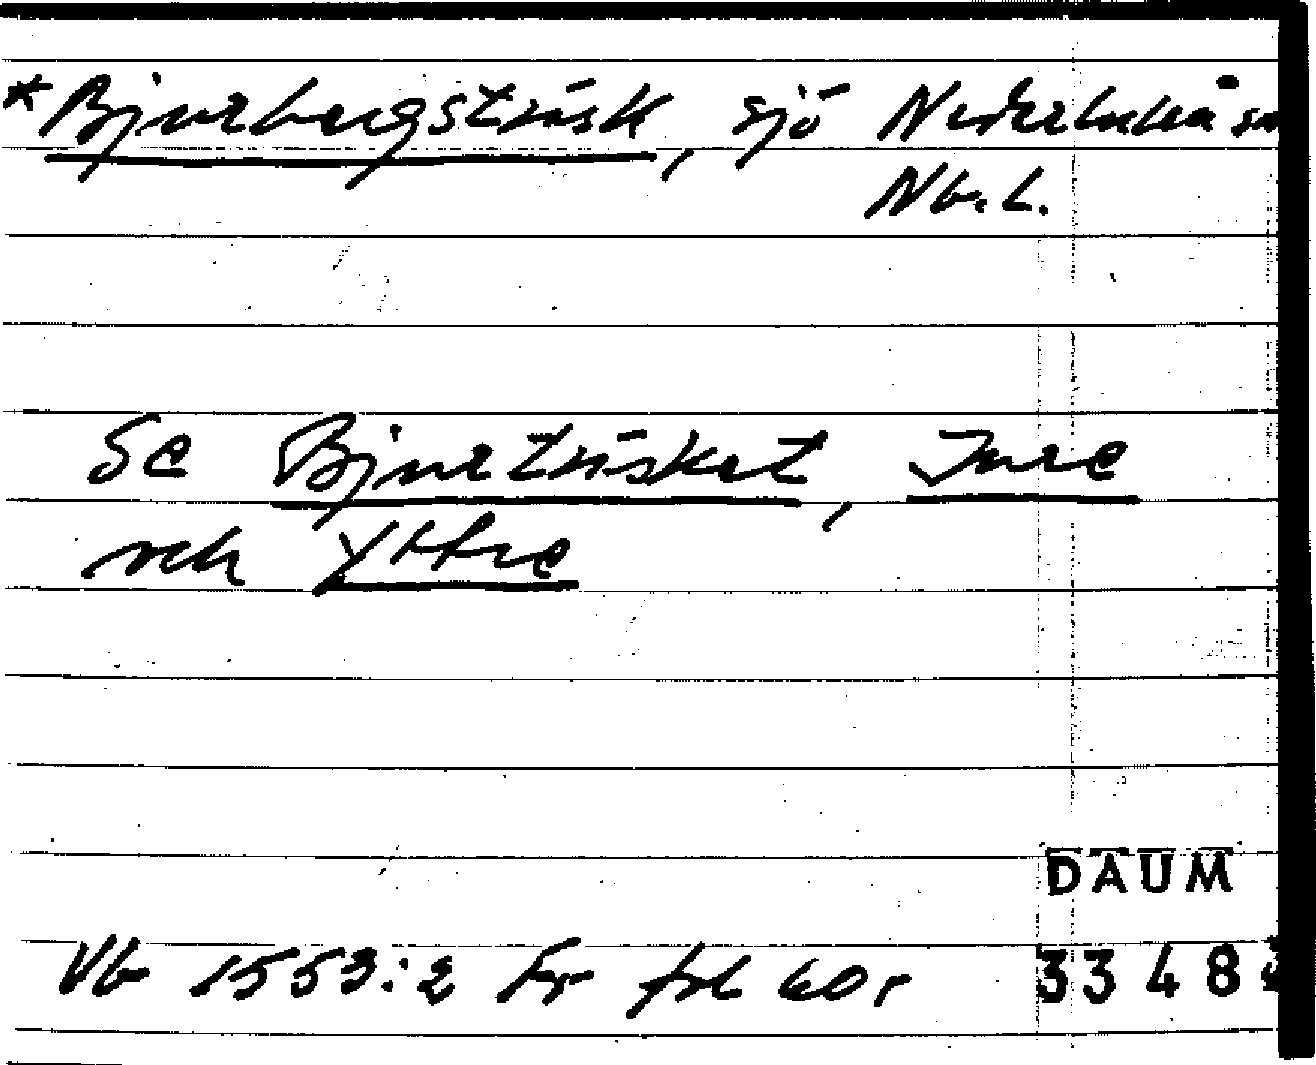 *Bjurbergsträsk, sjö Nederluleå sn
Nb.L.
Se Bjurträsket, Inre
och Yttre
DAUM
Vb 1553:2 fol 60r
3348